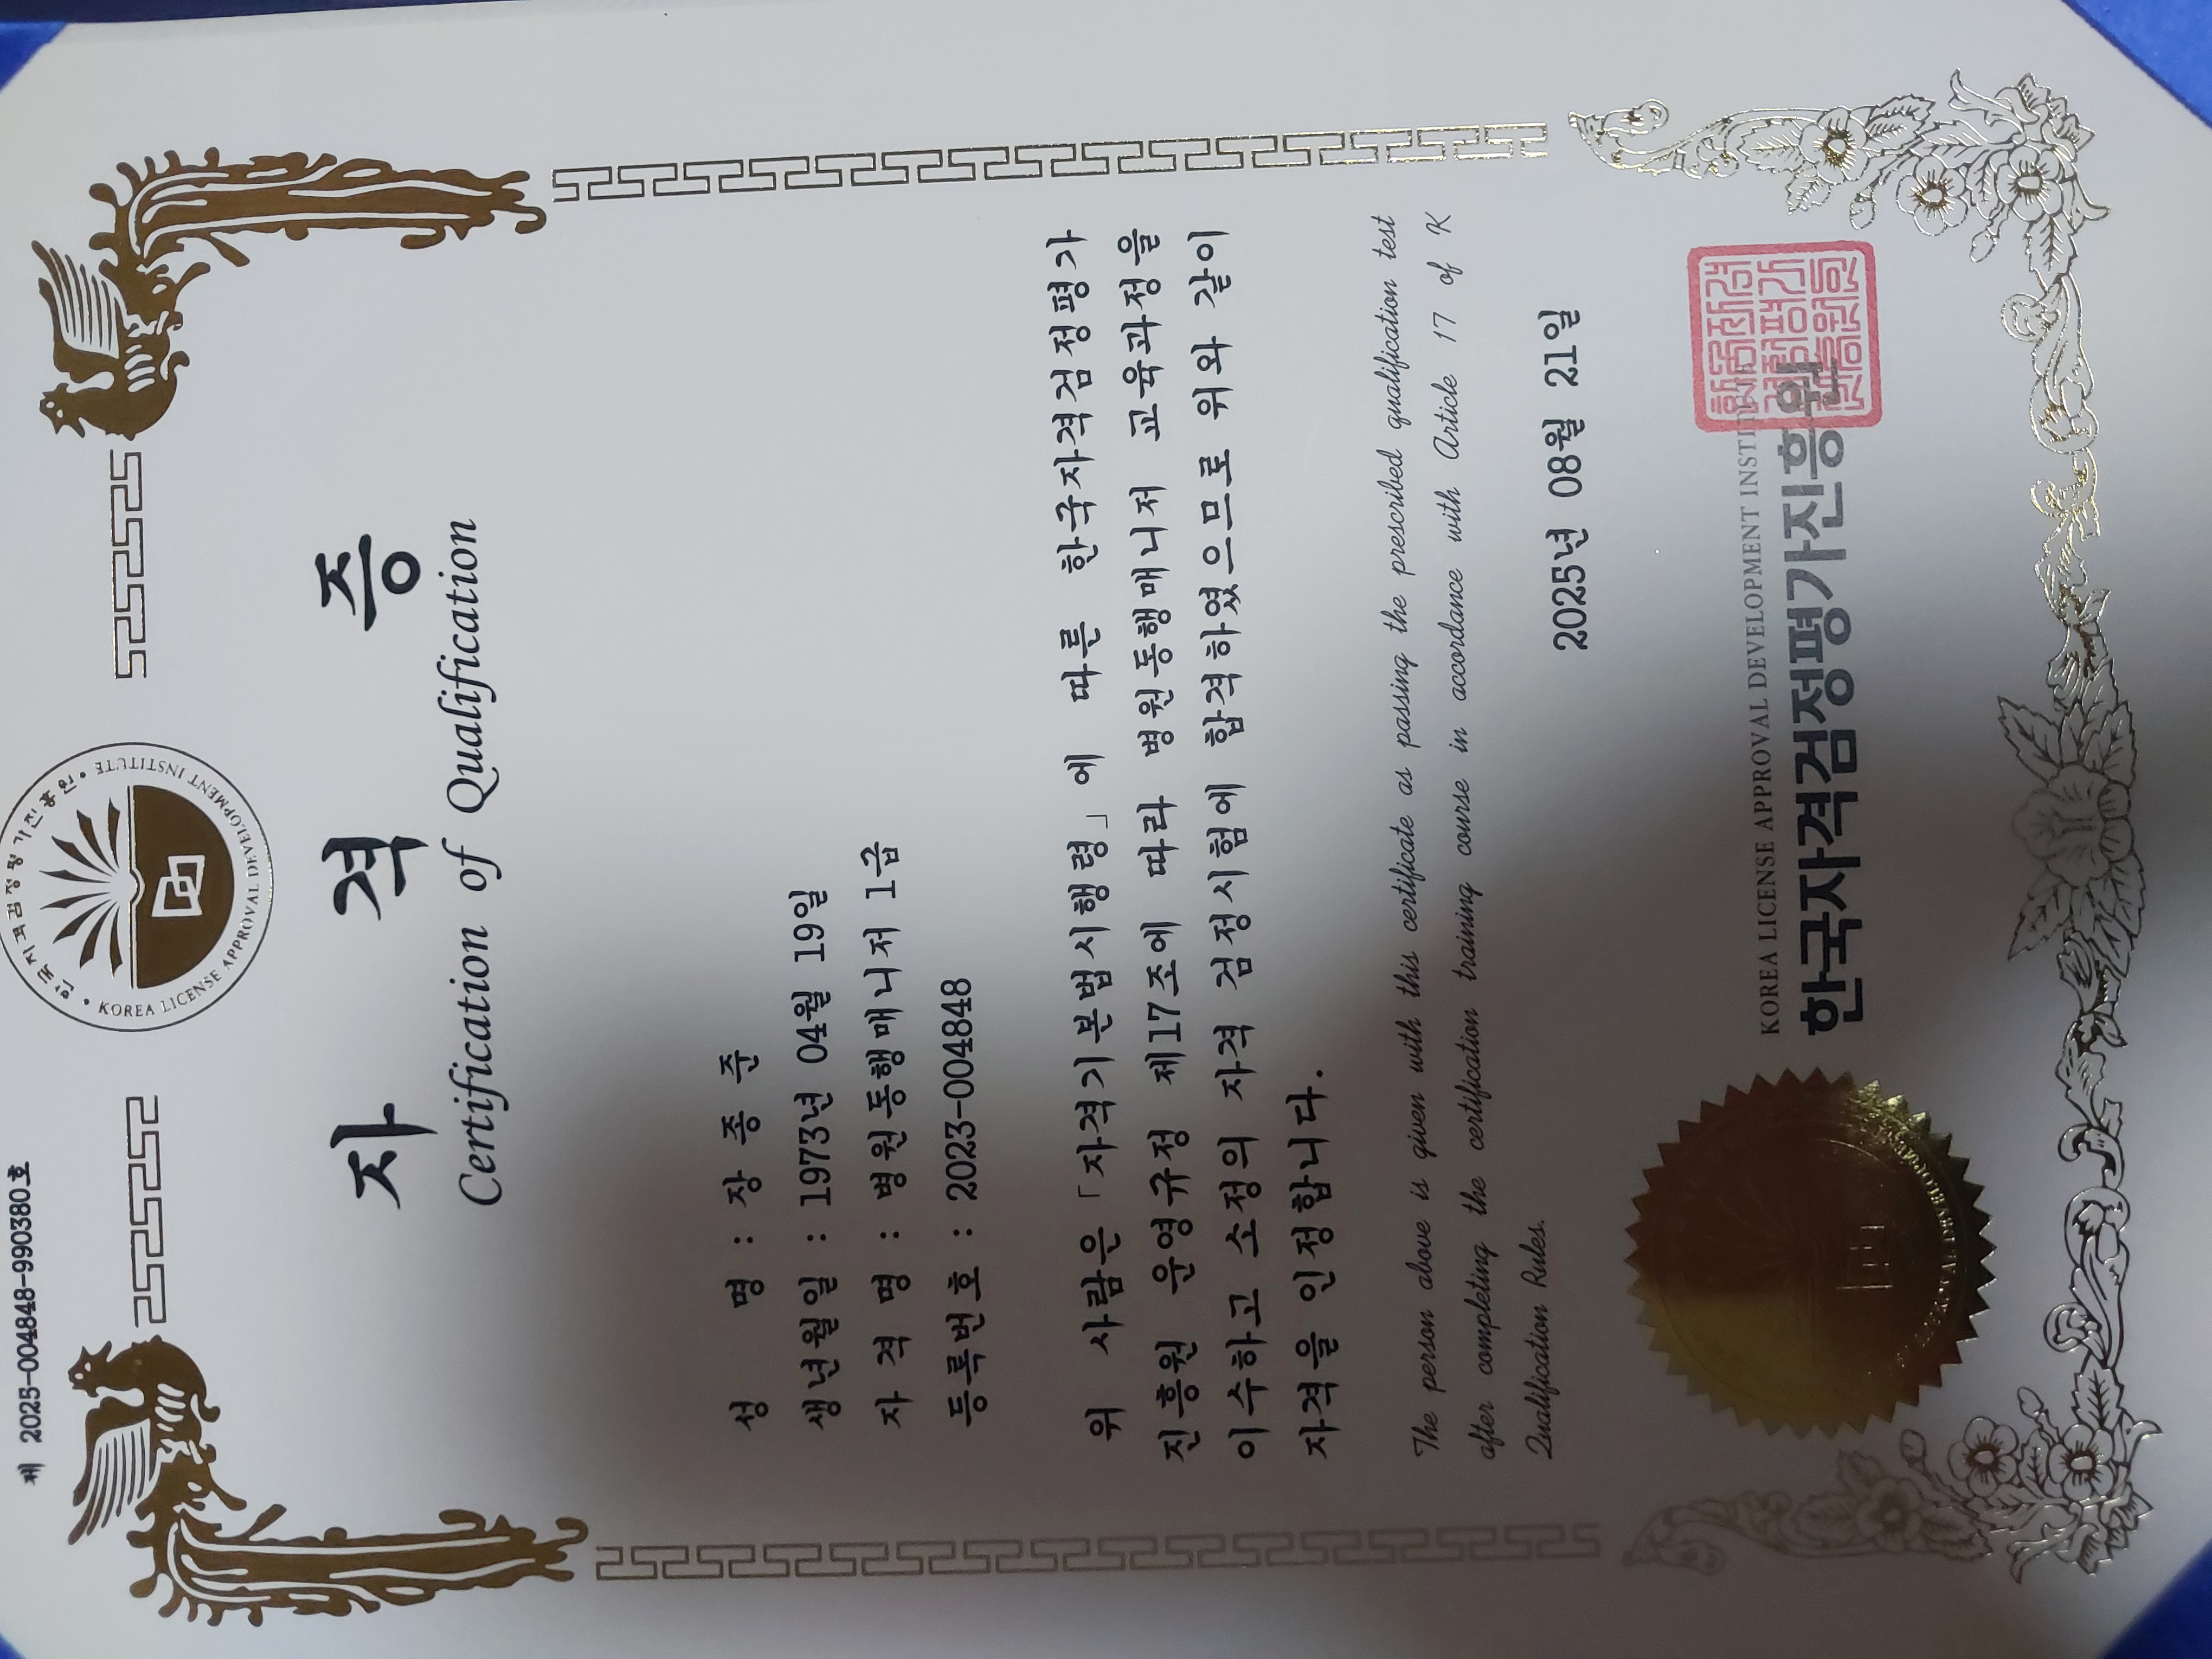 제 2025-004848-990380호
한국자격검정평가진흥원 • KOREA LICENSE APPROVAL DEVELOPMENT INSTITUTE •
자 격 증
Certification of Qualification
성 명 : 장 종 준
생년월일 : 1973년 04월 19일
자 격 명 : 병원동행매니저 1급
등록번호 : 2023-004848
위 사람은 「자격기본법시행령」에 따른 한국자격검정평가
진흥원 운영규정 제17조에 따라 병원동행매니저 교육과정을
이수하고 소정의 자격 검정시험에 합격하였으므로 위와 같이
자격을 인정합니다.
The person above is given with this certificate as passing the prescribed qualification test
after completing the certification training course in accordance with Article 17 of K
Qualification Rules.
2025년 08월 21일
KOREA LICENSE APPROVAL DEVELOPMENT INSTITUTE
한국자격검정평가진흥원